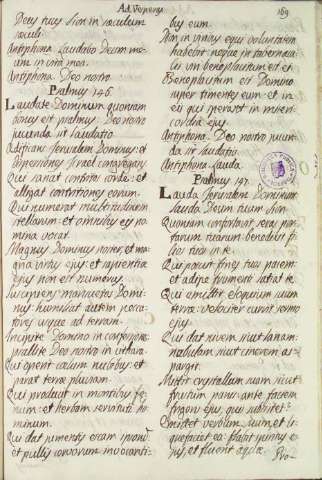 Ad Vesperas
169
Deus tuus Sion in sæculum
sæculi
Antiphona Laudabo Deum me-
um in vita mea.
Antiphona Deo nostro
Psalmus 146.
Laudate Dominum quoniam
bonus est psalmus: Deo nostro
jucunda sit laudatio
Ædificans Jerusalem Dominus: et
dispersiones Israel congregavit
Qui sanat contritos corde: et
alligat contritiones eorum.
Qui numerat multitudinem
stellarum: et omnibus eis no
mina vocat.
Magnus Dominus noster, et ma
gna virtus ejus: et sapientiæ
ejus non est numerus.
Suscipiens mansuetos Domi-
nus: humilians autem pecca
tores usque ad terram.
Præcinite Domino in confessione
psallite Deo nostro in cithara.
Qui operit cælum nubibus: et
parat terræ pluviam.
Qui producit in montibus fe
num: et herbam servituti ho
minum.
Qui dat jumentis escam ipsorum
et pullis corvorum invocanti-
bus eum.
Non in viribus equi voluntatem
habebit neque in taberna
lis viri beneplacitum est ei.
Beneplacitum est Domino
super timentes eum: et in
eis qui sperant in miseri
cordia ejus.
Antiphona. Deo nostro jucun
da sit laudatio.
Antiphona Lauda
Psalmus 147.
Lauda Jerusalem Dominum:
lauda Deum tuum Sion
Quoniam confortavit seras por
tarum tuarum: benedixit fi
liis tuis in te.
Qui posuit fines tuos pacem:
et adipe frumenti satiat te.
Qui emittit eloquium suum
terræ: velociter currit sermo
ejus.
Qui dat nivem sicut lanam:
nebulam sicut cinerem as-
pargit.
Mittit crystallum suam sicut
frustum panis: ante faciem
frigoris ejus, quis sustinebit
Emittet verbum suum, et li
quefaciet ea: flabit spiritus e
jus, et fluent aquæ.